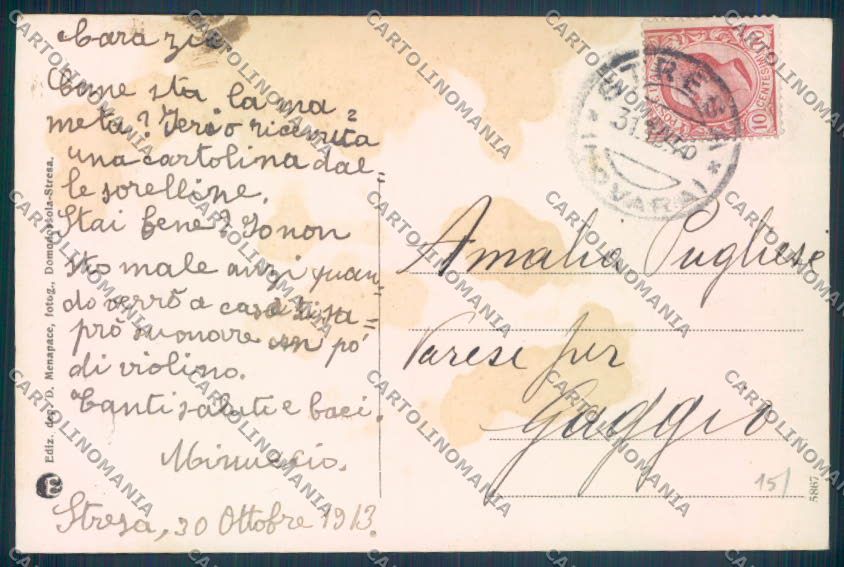 Cara zia
Come sta la ma
meta? Ieri o ricevuta
una cartolina dal=
le sorelline.
Stai bene? Io non
sto male anzi quan=
do verrò a casa ti sa=
prò suonare un pó
di violino.
Tanti saluti e baci.
Stresa, 30 Ottobre 1913.
Ediz. dep. D. Menapace, fotog., Domodossola-Stresa.
STRESA
NOVARA
10 CENTESIMI 10
POSTE
Amalia Pugliese
Varese per
Gaggio
15/
5867
CARTOLINOMANIA